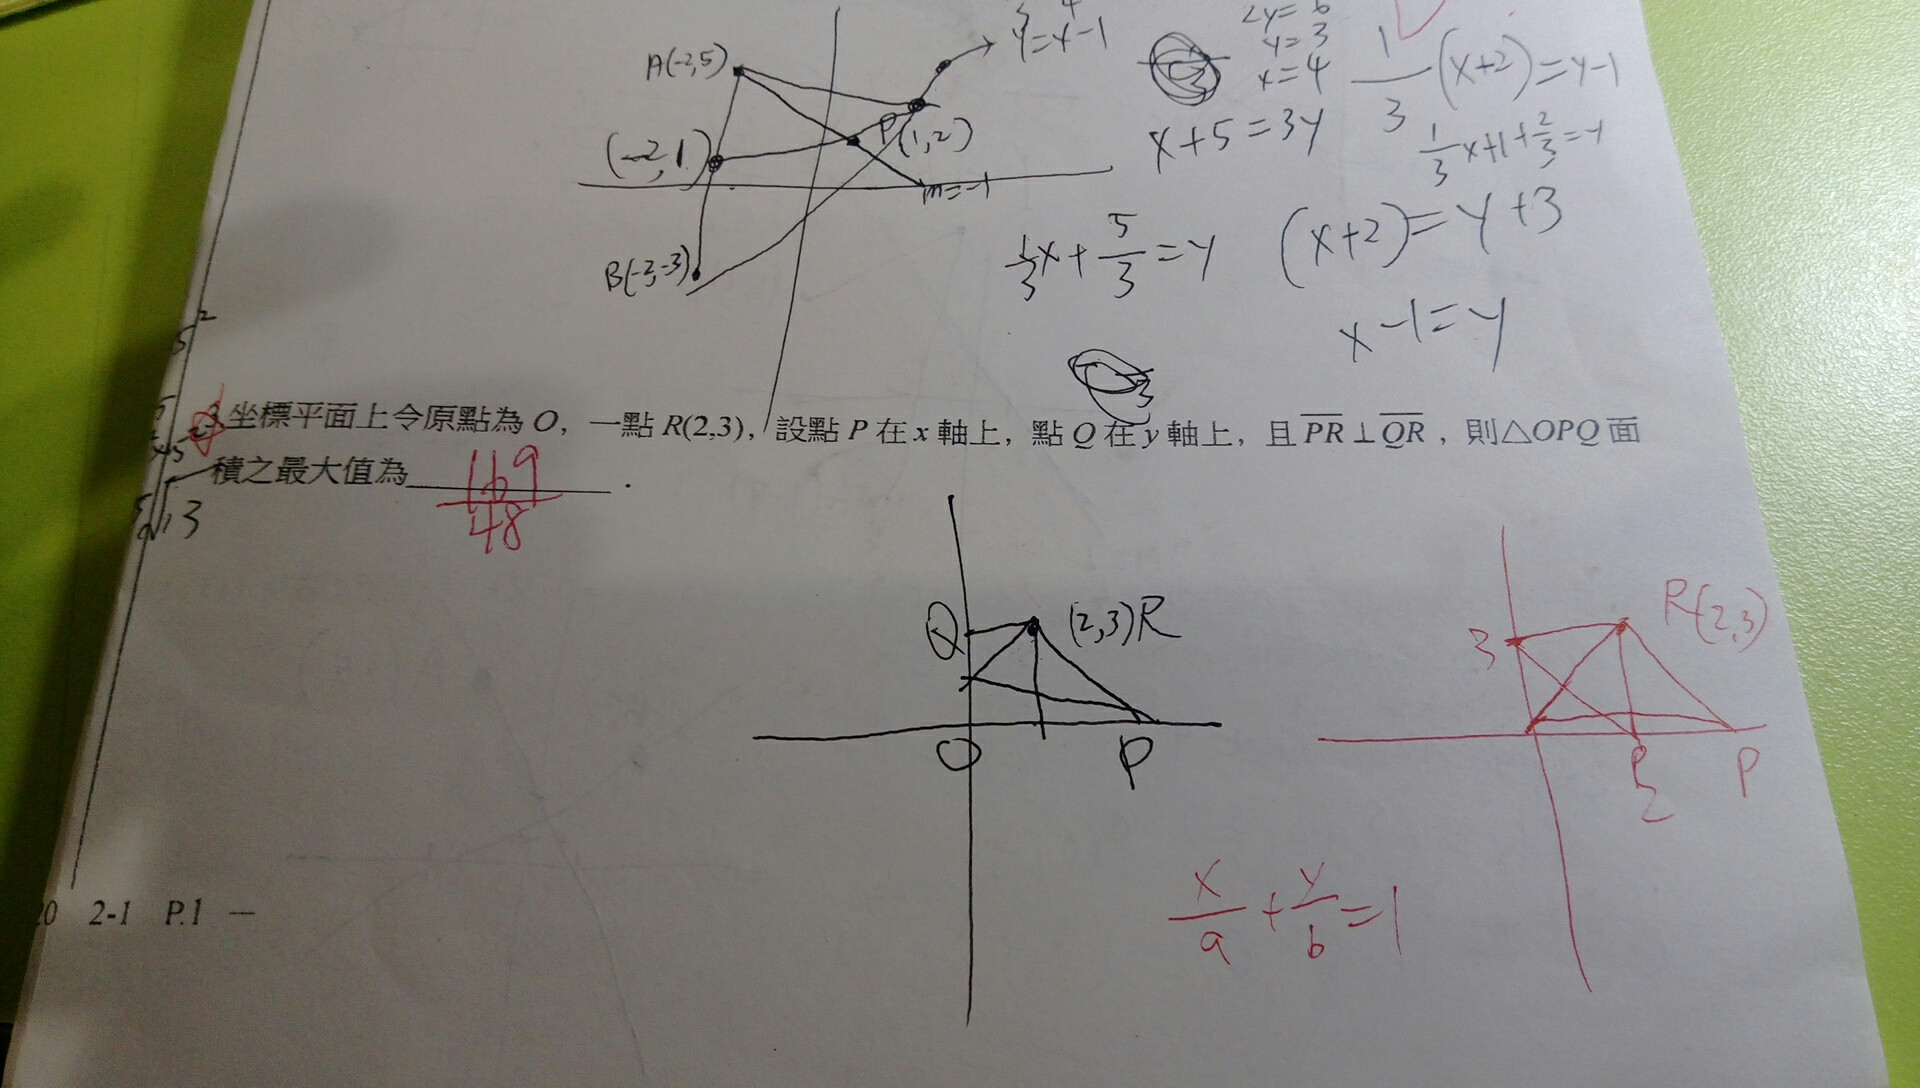 y=x-1
2y=6
y=3
x=4
A(-2,5)
(-2,1)
P(1,2)
m=-1
B(-2,-3)
x+5=3y
1/3(x+2)=y-1
1/3x+1+2/3=y
1/3x+5/3=y
(x+2)=y+3
x-1=y
3.坐標平面上令原點為 O，一點 R(2,3)，設點 P 在 x 軸上，點 Q 在 y 軸上，且 PR⊥QR，則△OPQ 面
積之最大值為 169/48 .
13
Q
(2,3)R
O
P
3
R(2,3)
P
2
P
x/a+y/b=1
20 2-1 P.1 —